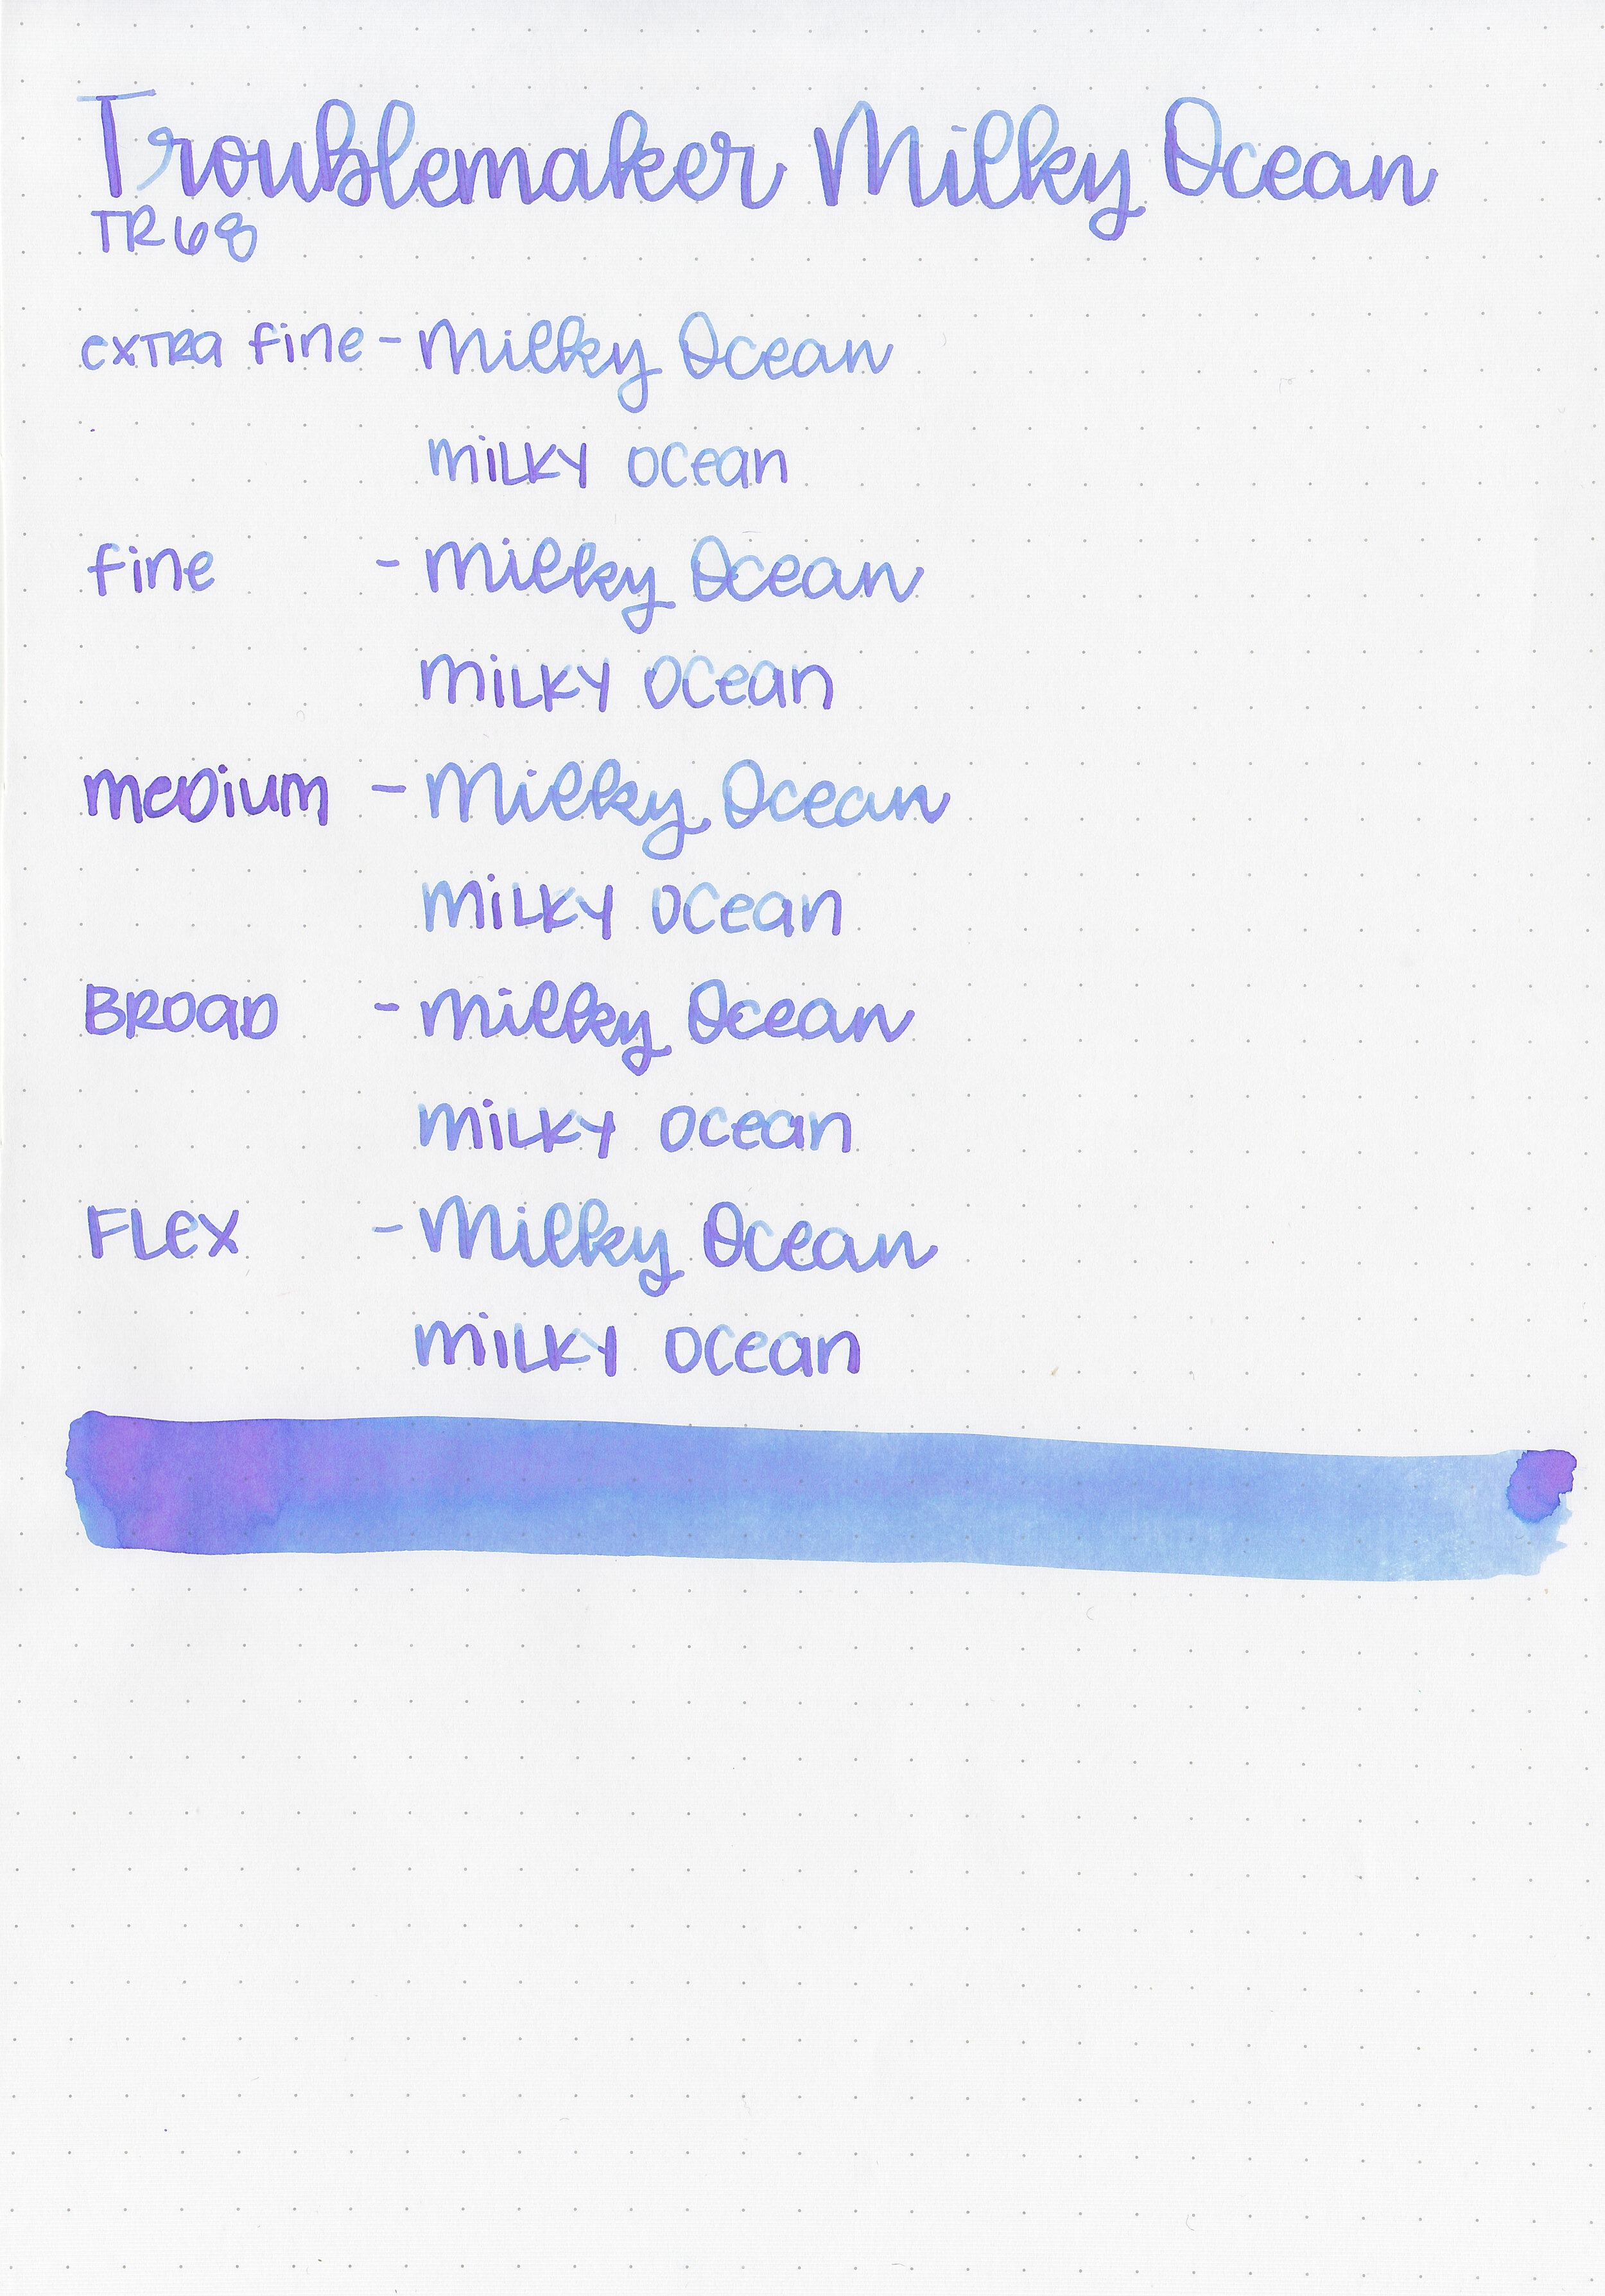 Troublemaker Milky Ocean
TR68
extra fine - Milky Ocean
milky ocean
fine - Milky Ocean
milky ocean
medium - Milky Ocean
milky ocean
Broad - Milky Ocean
milky ocean
Flex - Milky Ocean
milky ocean